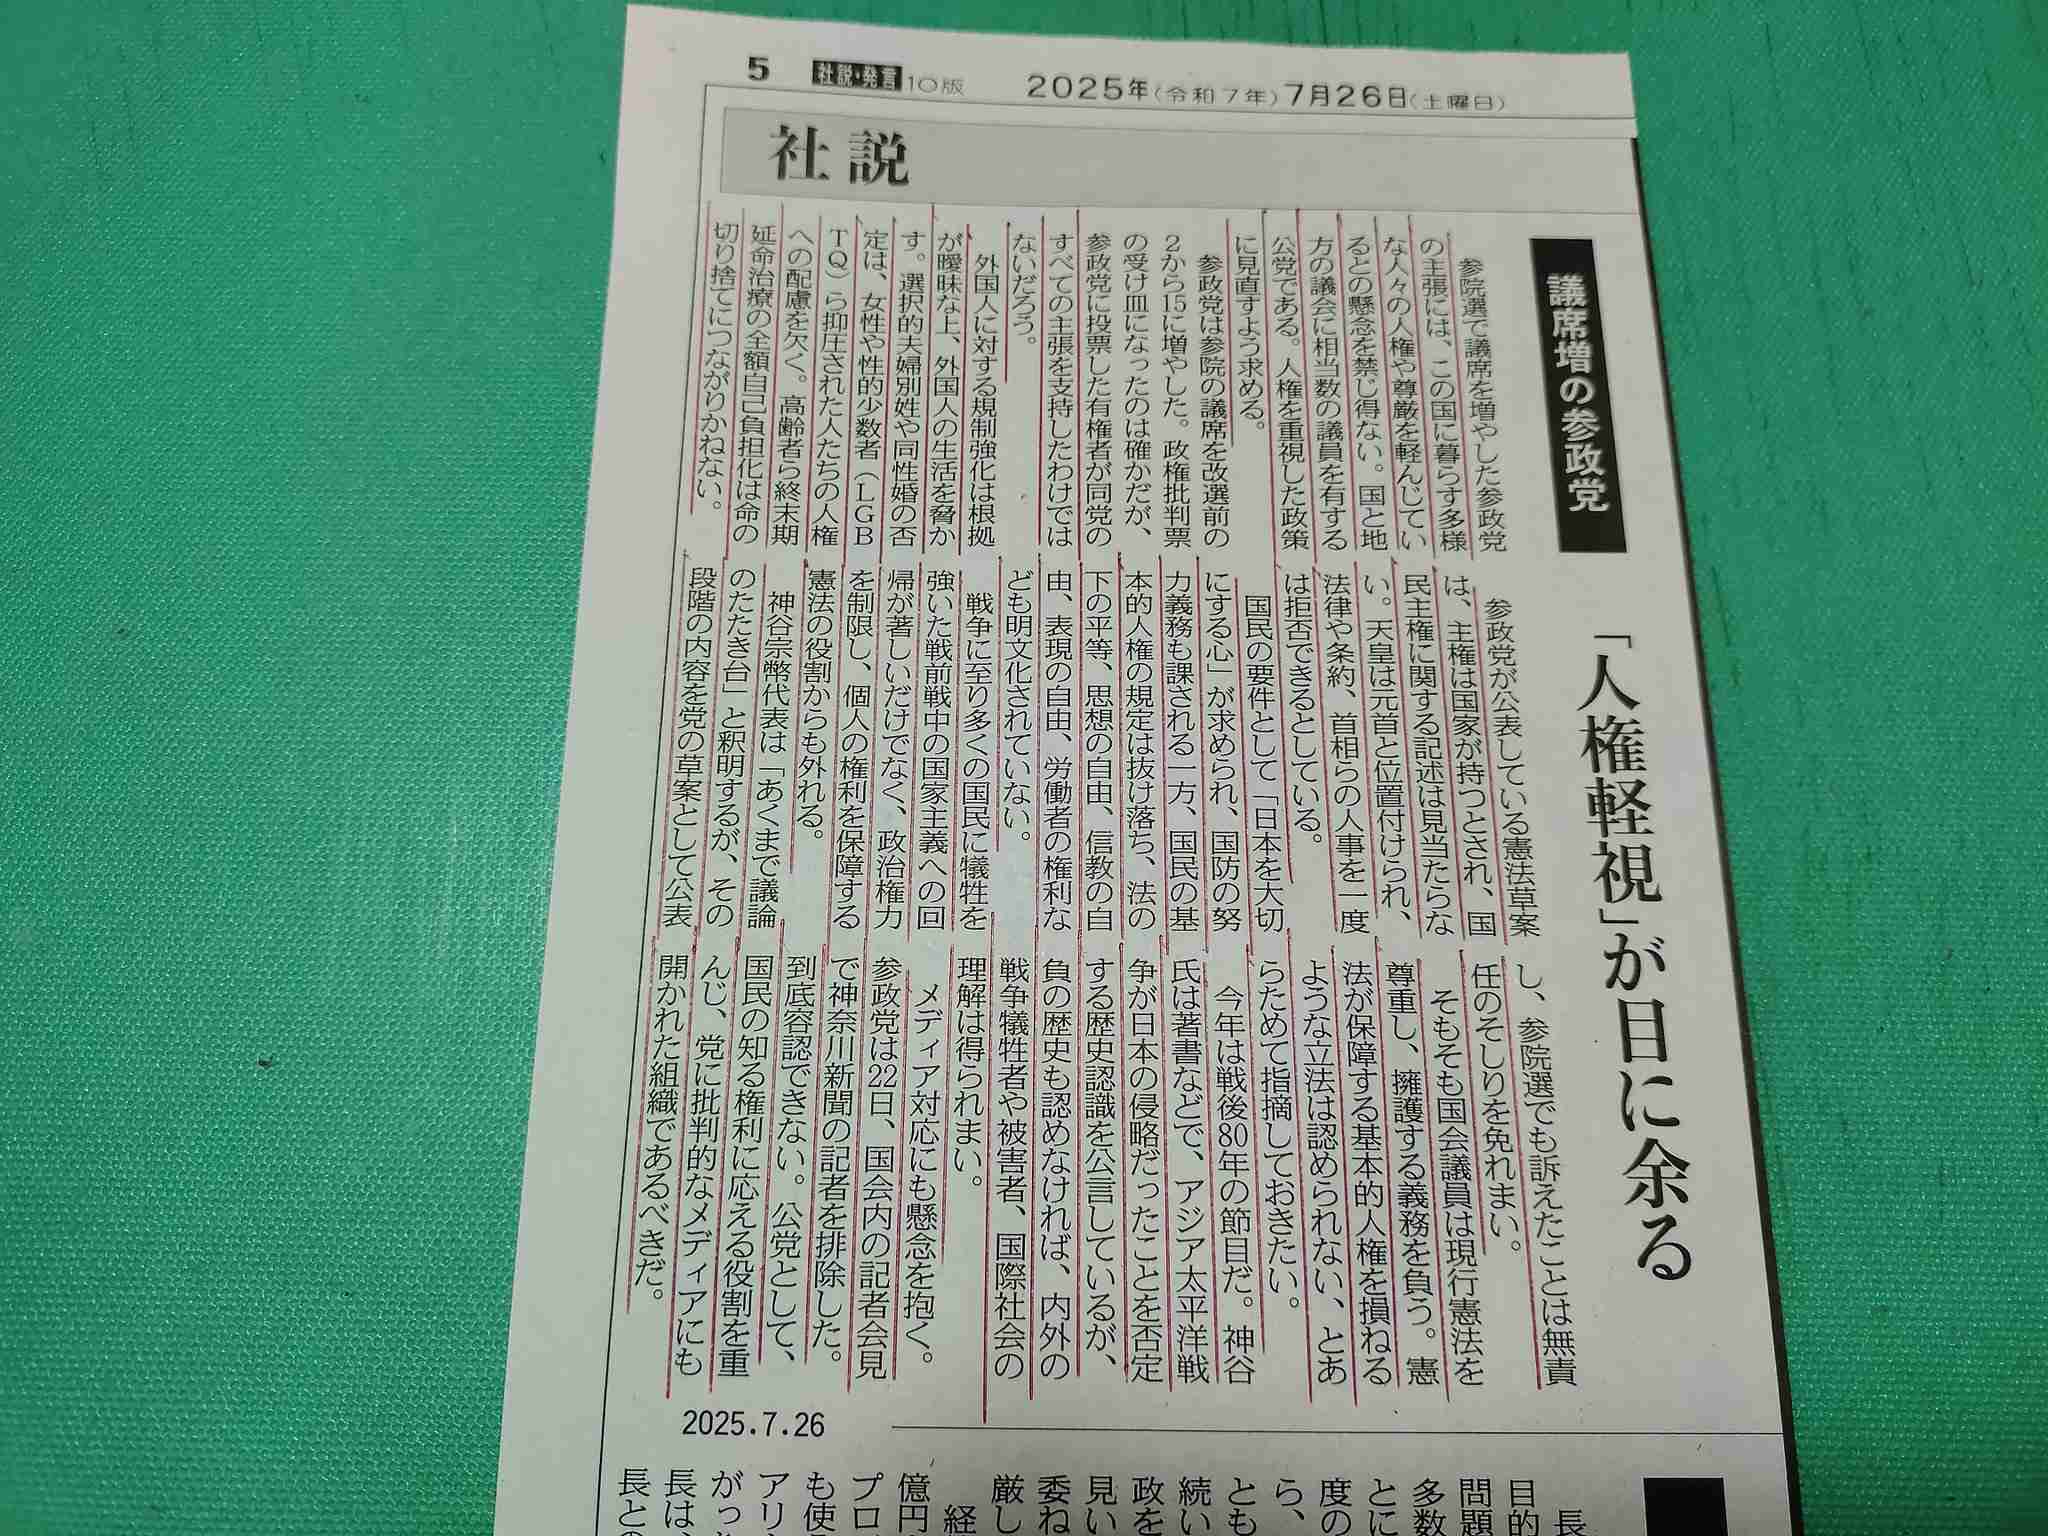 5 社説・発言 10版 2025年(令和7年)7月26日(土曜日)
社説
議席増の参政党
「人権軽視」が目に余る
参院選で議席を増やした参政党
の主張には、この国に暮らす多様
な人々の人権や尊厳を軽んじてい
るとの懸念を禁じ得ない。国と地
方の議会に相当数の議員を有する
公党である。人権を重視した政策
に見直すよう求める。
参政党は参院の議席を改選前の
2から15に増やした。政権批判票
の受け皿になったのは確かだが、
参政党に投票した有権者が同党の
すべての主張を支持したわけでは
ないだろう。
外国人に対する規制強化は根拠
が曖昧な上、外国人の生活を脅か
す。選択的夫婦別姓や同性婚の否
定は、女性や性的少数者(LGB
TQ)ら抑圧された人たちの人権
への配慮を欠く。高齢者ら終末期
延命治療の全額自己負担化は命の
切り捨てにつながりかねない。
参政党が公表している憲法草案
は、主権は国家が持つとされ、国
民主権に関する記述は見当たらな
い。天皇は元首と位置付けられ、
法律や条約、首相らの人事を一度
は拒否できるとしている。
国民の要件として「日本を大切
にする心」が求められ、国防の努
力義務も課される一方、国民の基
本的人権の規定は抜け落ち、法の
下の平等、思想の自由、信教の自
由、表現の自由、労働者の権利な
ども明文化されていない。
戦争に至り多くの国民に犠牲を
強いた戦前戦中の国家主義への回
帰が著しいだけでなく、政治権力
を制限し、個人の権利を保障する
憲法の役割からも外れる。
神谷宗幣代表は「あくまで議論
のたたき台」と釈明するが、その
段階の内容を党の草案として公表
し、参院選でも訴えたことは無責
任のそしりを免れまい。
そもそも国会議員は現行憲法を
尊重し、擁護する義務を負う。憲
法が保障する基本的人権を損ねる
ような立法は認められない、とあ
らためて指摘しておきたい。
今年は戦後80年の節目だ。神谷
氏は著書などで、アジア太平洋戦
争が日本の侵略だったことを否定
する歴史認識を公言しているが、
負の歴史も認めなければ、内外の
戦争犠牲者や被害者、国際社会の
理解は得られまい。
メディア対応にも懸念を抱く。
参政党は22日、国会内の記者会見
で神奈川新聞の記者を排除した。
到底容認できない。公党として、
国民の知る権利に応える役割を重
んじ、党に批判的なメディアにも
開かれた組織であるべきだ。
2025.7.26
長
目的
問題
多数
とに
度の
ら、
とも
続い
政を
見い
委ね
厳し
経
億円
プロ
も使
アリ
がっ
長は、
長と